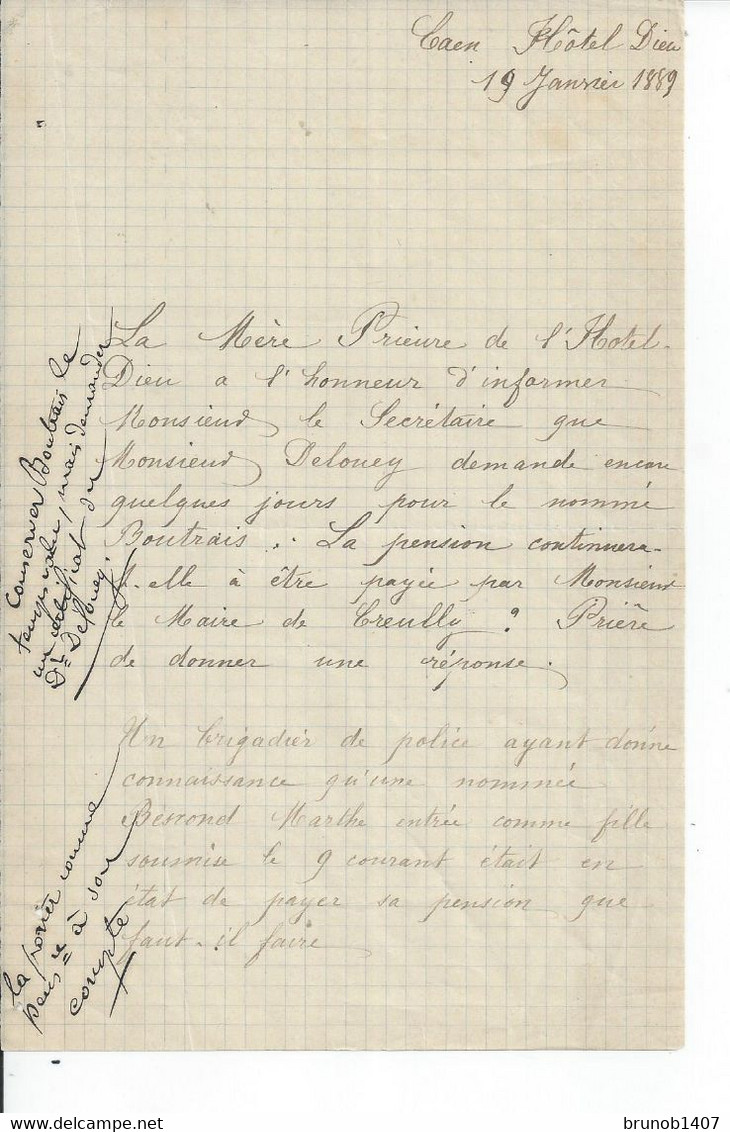 Caen Hôtel Dieu
19 Janvier 1889
La Mère Prieure de l'Hotel-
Dieu a l'honneur d'informer
Monsieur le Secrétaire que
Monsieur Delouey demande encore
quelques jours pour le nommé
Boutrais. La pension continuera-
t-elle à être payée par Monsieur
le Maire de Creully ? Prière
de donner une réponse.
conserver Boutrais le
temps voulu, mais demander
un certificat du
Dr Delouey.
Un brigadier de police ayant donné
connaissance qu'une nommée
Bescond Marthe entrée comme fille
soumise le 9 courant était en
état de payer sa pension que
faut-il faire
la porter comme
pensre à son
compte
brunob1407